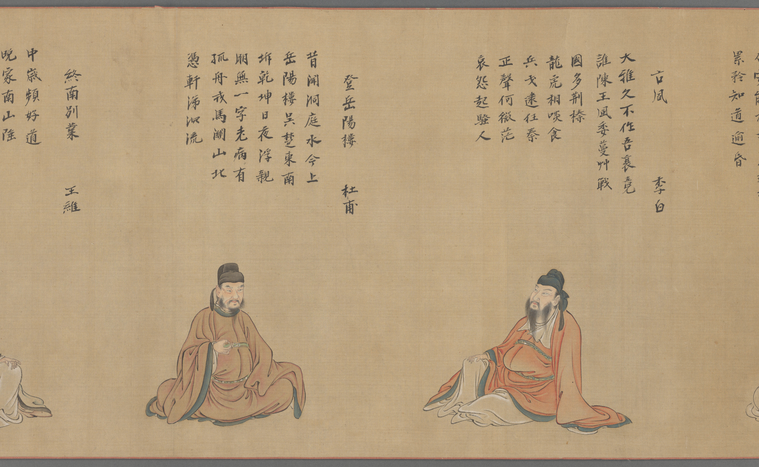 知道
古風 李白
大雅久不作吾衰竟
誰陳王風委蔓艸戰
國多荊榛
龍虎相啖食
兵戈逮狂秦
正聲何微茫
哀怨起騷人
登岳陽樓 杜甫
昔聞洞庭水今上
岳陽樓吳楚東南
坼乾坤日夜浮親
朋無一字老病有
孤舟戎馬關山北
憑軒涕泗流
終南別業 王維
中歲頗好道
晚家南山陲